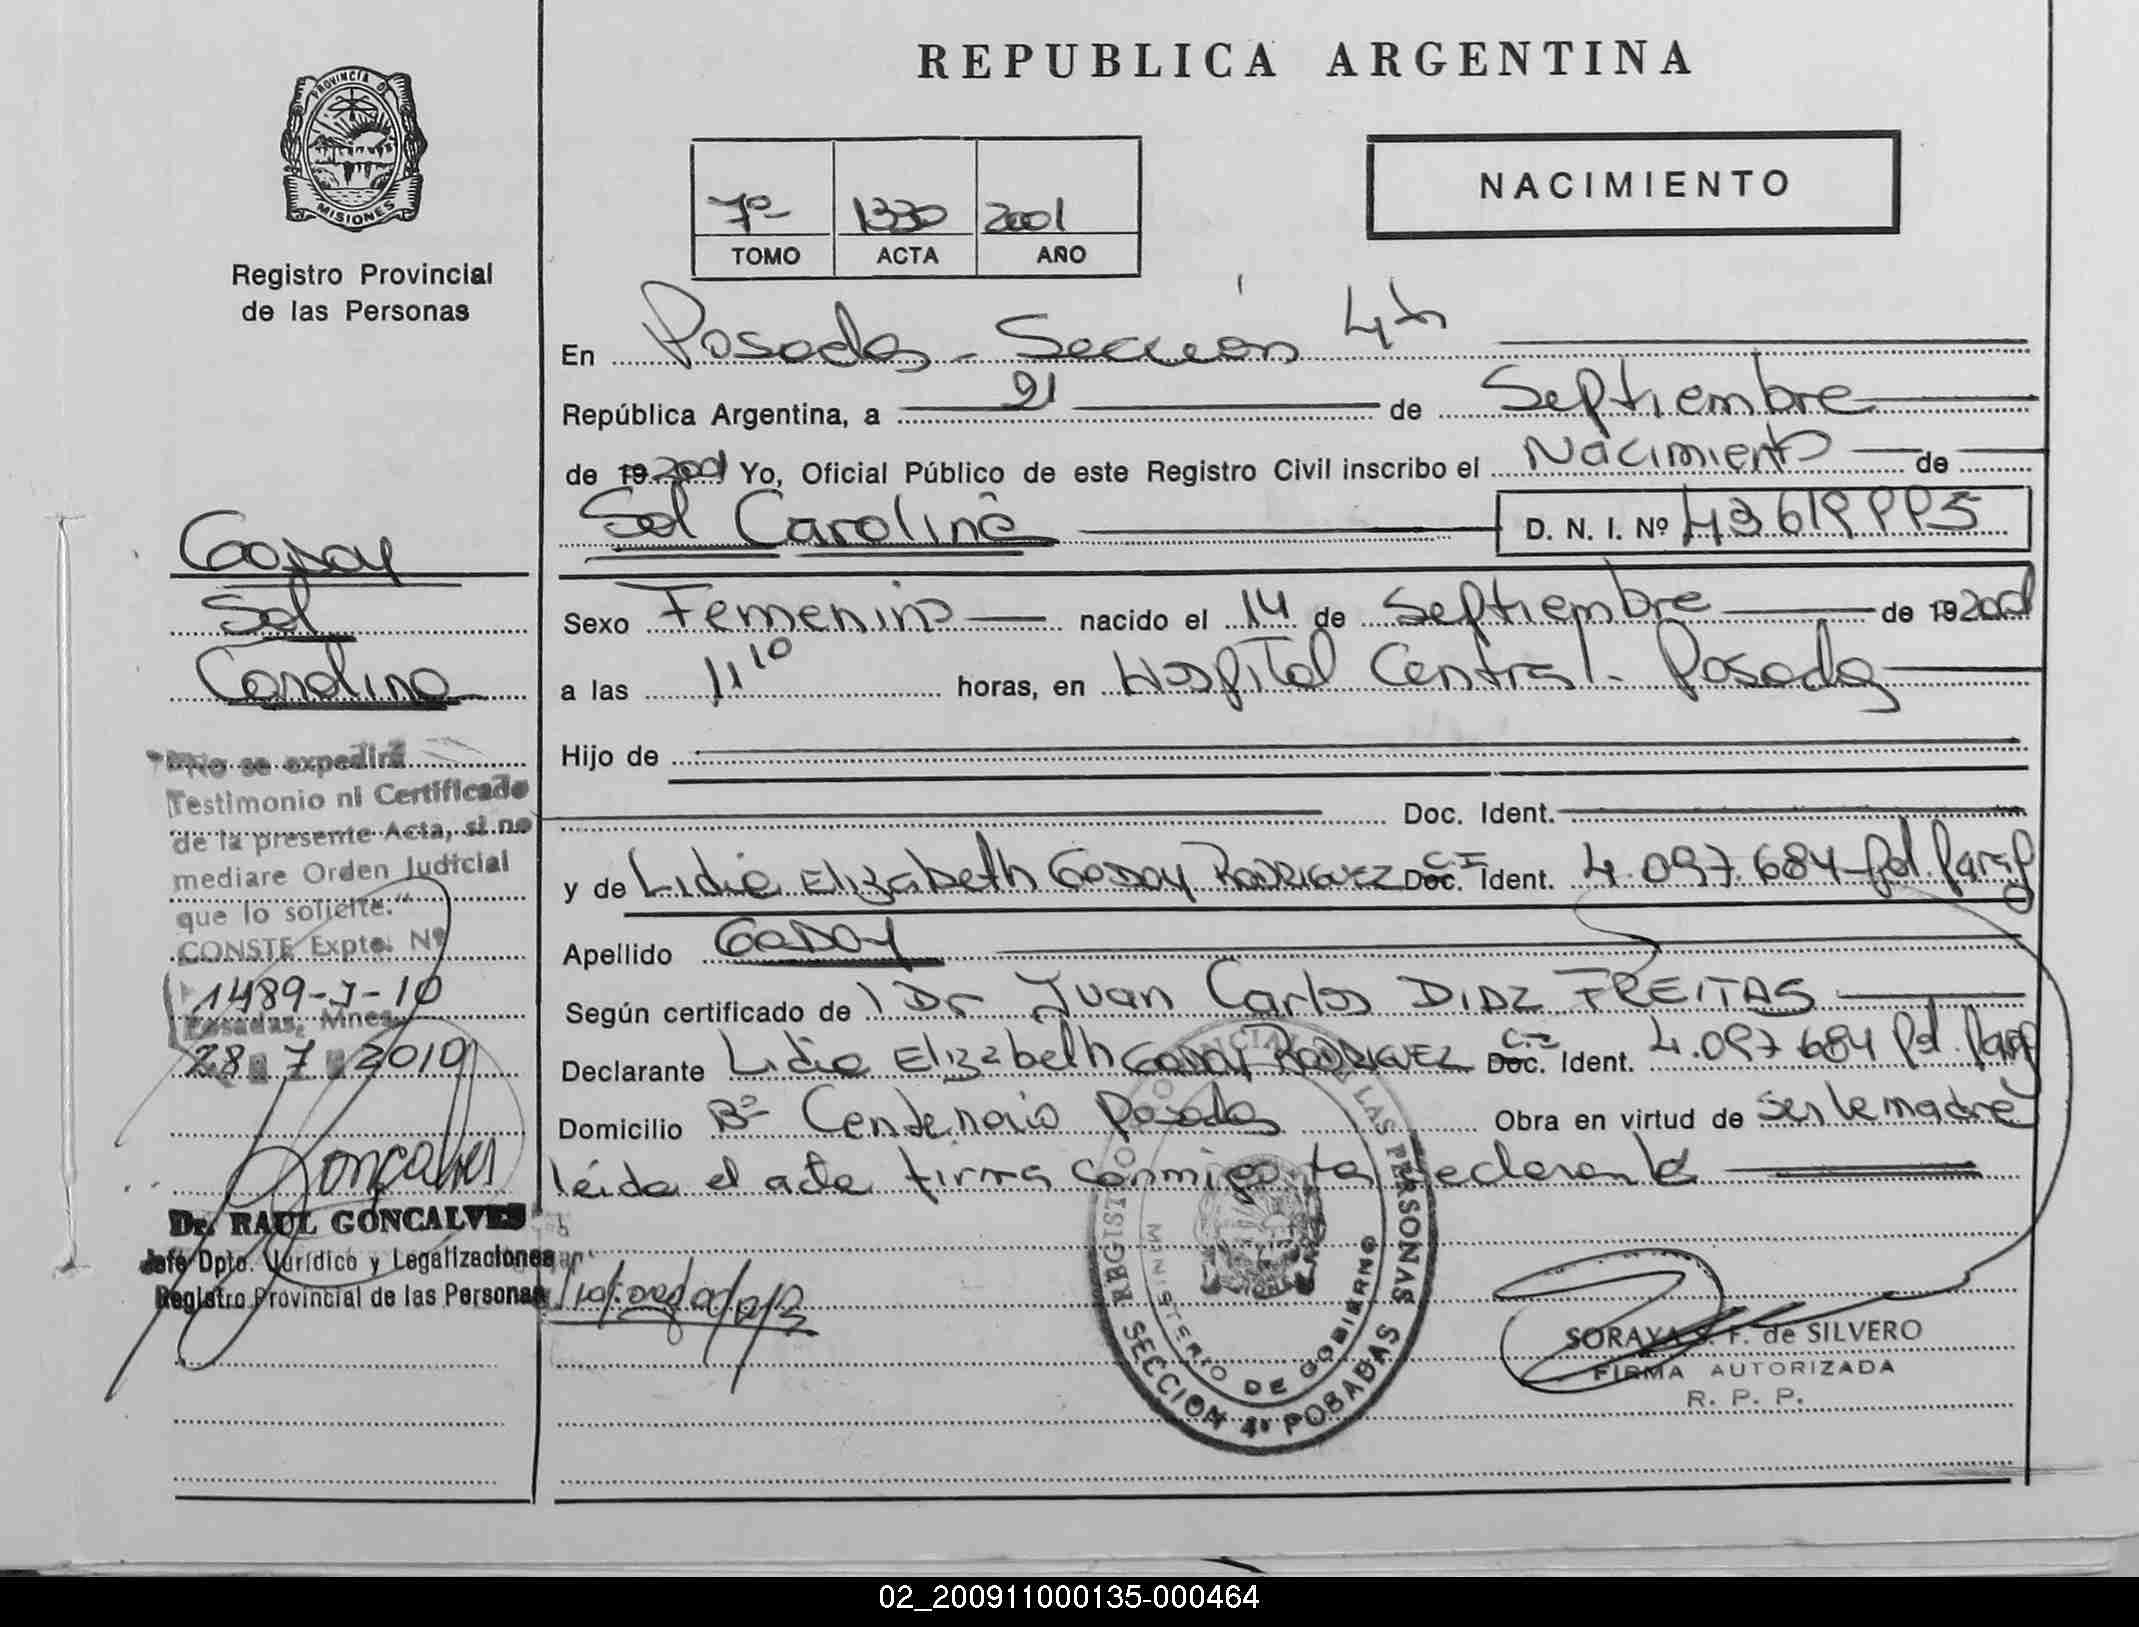 REPUBLICA ARGENTINA
PROVINCIA D
MISIONES
Registro Provincial
de las Personas
7º 1330 2001
TOMO ACTA AÑO
NACIMIENTO
En Posadas - Sección 4ta
República Argentina, a 21 de Septiembre
de 19 2001 Yo, Oficial Público de este Registro Civil inscribo el Nacimiento de
Sol Carolina D. N. I. Nº
Sexo Femenino nacido el 14 de Septiembre de 19 2001
a las 11 10 horas, en Hospital Central - Posadas
Hijo de
Doc. Ident.
y de Lidia Elizabeth GODOY RODRIGUEZ C.I. Doc. Ident. 4.097.684 Pol. Parag
Apellido GODOY
Según certificado de Dr Juan Carlos DIAZ FREITAS
Declarante Lidia Elizabeth GODOY RODRIGUEZ C.I. Doc. Ident. 4.097 684 Pol. Parag
Domicilio Bº Centenario Posadas Obra en virtud de ser la madre
leida el acta firma conmigo la declarante
GODOY
Sol
Carolina
"No se expedirá
Testimonio ni Certificado
de la presente Acta, si no
mediare Orden Judicial
que lo solicite."
CONSTE Expte. Nº
1489-J-10
Posadas, Mnes.
28 7 2010
Goncalves
Dr. RAUL GONCALVES
Jefe Dpto. Jurídico y Legalizaciones
Registro Provincial de las Personas
REGISTRO PROVINCIAL DE LAS PERSONAS
MINISTERIO DE GOBIERNO
SECCION 4ª POSADAS
SORAYA S. F. de SILVERO
FIRMA AUTORIZADA
R. P. P.
02_200911000135-000464